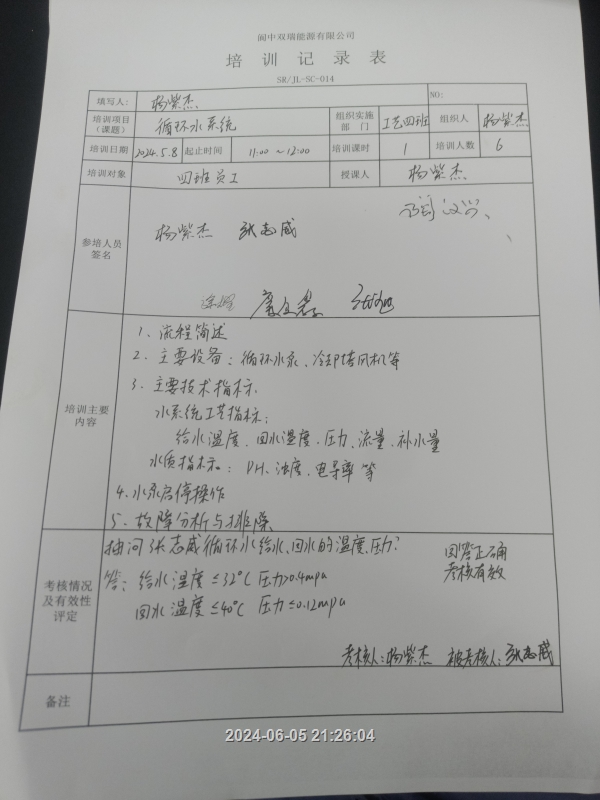 阆中双瑞能源有限公司
培训记录表
SR/JL-SC-014
填写人: 杨紫杰 NO:
培训项目（课题） 循环水系统 组织实施部门 工艺四班 组织人 杨紫杰
培训日期 2024.5.8 起止时间 11:00 ~ 12:00 培训课时 1 培训人数 6
培训对象 四班员工 授课人 杨紫杰
参培人员签名
杨紫杰 张志威
培训主要内容
1、流程简述
2、主要设备：循环水泵、冷却塔风机等
3、主要技术指标
水系统工艺指标：
给水温度、回水温度、压力、流量、补水量
水质指标：PH、浊度、电导率等
4、水泵启停操作
5、故障分析与排除
考核情况及有效性评定
抽问张志威循环水给水、回水的温度、压力？
答：给水温度≤32℃ 压力>0.4mpa
回水温度≤40℃ 压力≤0.12mpa
回答正确
考核有效
考核人：杨紫杰 被考核人：张志威
备注
2024-06-05 21:26:04